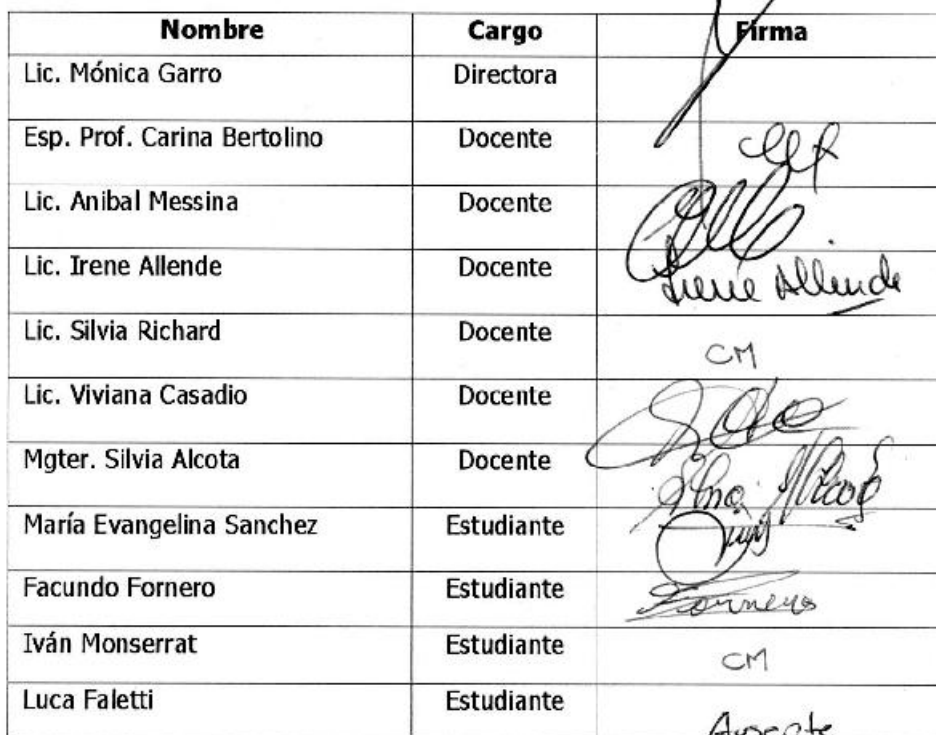 Nombre Cargo Firma
Lic. Mónica Garro Directora
Esp. Prof. Carina Bertolino Docente
Lic. Anibal Messina Docente
Lic. Irene Allende Docente Irene Allende
Lic. Silvia Richard Docente CM
Lic. Viviana Casadio Docente
Mgter. Silvia Alcota Docente
María Evangelina Sanchez Estudiante
Facundo Fornero Estudiante Fornero
Iván Monserrat Estudiante CM
Luca Faletti Estudiante Ausente